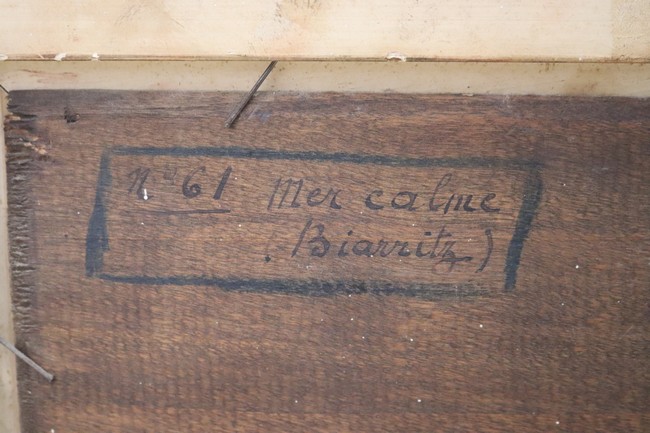 No 61 Mer calme
(Biarritz)